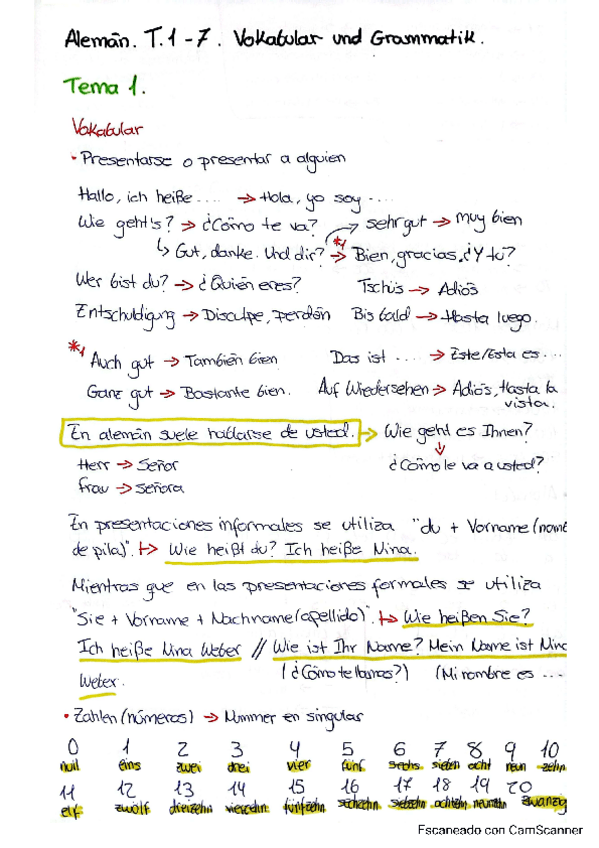 Alemán. T.1-7. Vokabular und Grammatik.
Tema 1.
Vokabular
• Presentarse o presentar a alguien
Hallo, ich heiße .... → Hola, yo soy ....
Wie geht's? → ¿Cómo te va? → sehr gut → muy bien
↳ Gut, danke. Und dir? *1 → Bien, gracias, ¿Y tú?
Wer bist du? → ¿Quién eres? Tschüs → Adiós
Entschuldigung → Disculpe, perdón Bis bald → Hasta luego.
*1 Auch gut → También bien Das ist .... → Este/Esta es ...
Ganz gut → Bastante bien. Auf Wiedersehen → Adiós, Hasta la
vista.
En alemán suele hablarse de usted. → Wie geht es Ihnen?
↓
Herr → Señor ¿Cómo le va a usted?
Frau → Señora
En presentaciones informales se utiliza "du + Vorname (nomb
de pila)". ↦ Wie heißt du? Ich heiße Nina.
Mientras que en las presentaciones formales se utiliza
"Sie + Vorname + Nachname (apellido)". ↦ Wie heißen Sie?
Ich heiße Nina Weber // Wie ist Ihr Name? Mein Name ist Nina
Weber. (¿Cómo te llamas?) (Mi nombre es ...
• Zahlen (números) → Nummer en singular
0 1 2 3 4 5 6 7 8 9 10
null eins zwei drei vier fünf sechs sieben acht neun zehn
11 12 13 14 15 16 17 18 19 20
elf zwölf dreizehn vierzehn fünfzehn sechzehn siebzehn achtzehn neunzehn zwanzig
Escaneado con CamScanner